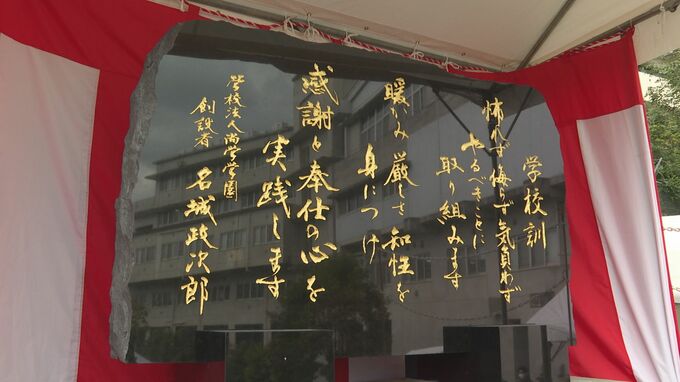 学校訓
怖れず侮らず気負わず
やるべきことに
取り組みます
暖かみ厳しさ知性を
身につけ
感謝と奉仕の心を
実践します
学校法人尚学学園
創設者 名城政次郎